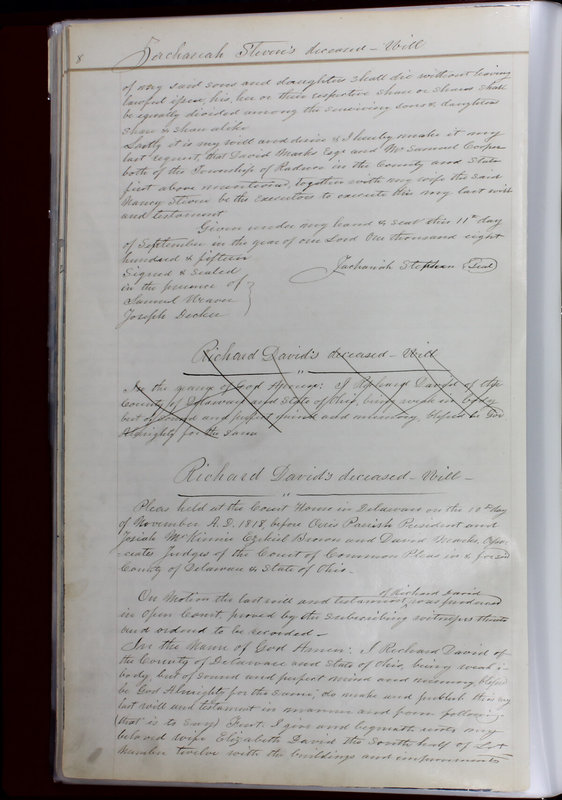 8
Zachariah Steven's deceased - Will
of my said sons and daughters shall die without leaving
lawful issue, his, her or their respective share or shares shall
be equally divided among the surviving sons & daughters
share & share alike
Lastly it is my will and desire & I hereby make it my
last request, that David Marks Esqr and Mr Samuel Cooper
both of the Township of Radnor in the County and State
first above mentioned, together with my wife the said
Nancy Steven be the Executors to execute this my last will
and testament
Given under my hand & seal this 11th day
of September in the year of our Lord One thousand eight
hundred & fifteen
Zachariah Stephen Seal
Signed & sealed
in the presence of
Samuel Weaver
Joseph Decker
Richard David's deceased - Will
"
In the name of God Amen: I Richard David of the
County of Delaware and State of Ohio, being weak in body
but of sound and perfect mind and memory, blessed be God
Almighty for the same
Richard David's deceased - Will -
"
Pleas held at the Court House in Delaware on the 10th day
of November A.D. 1818, before Orris Parish President and
Josiah McKinnie Ezekiel Brown and David Marks, Asso-
ciates Judges of the Court of Common Pleas in & for said
County of Delaware & State of Ohio -
of Richard David
On Motion the last will and testament, was produced
in Open Court, proved by the subscribing witnesses thereto
and ordered to be recorded -
In the Name of God Amen: I Richard David of
the County of Delaware and State of Ohio, being weak in
body, but of sound and perfect mind and memory blessed
be God Almighty for the same; do make and publish this my
last will and testament in manner and form following
(that is to say) First. I give and bequeath unto my
beloved wife Elizabeth David the South half of Lot
Number twelve with the buildings and improvements